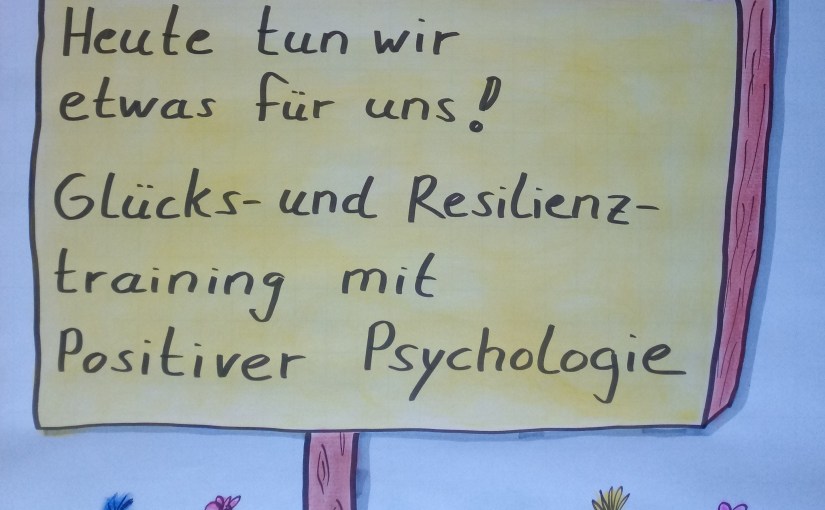 Heute tun wir
etwas für uns!
Glücks- und Resilienz-
training mit
Positiver Psychologie